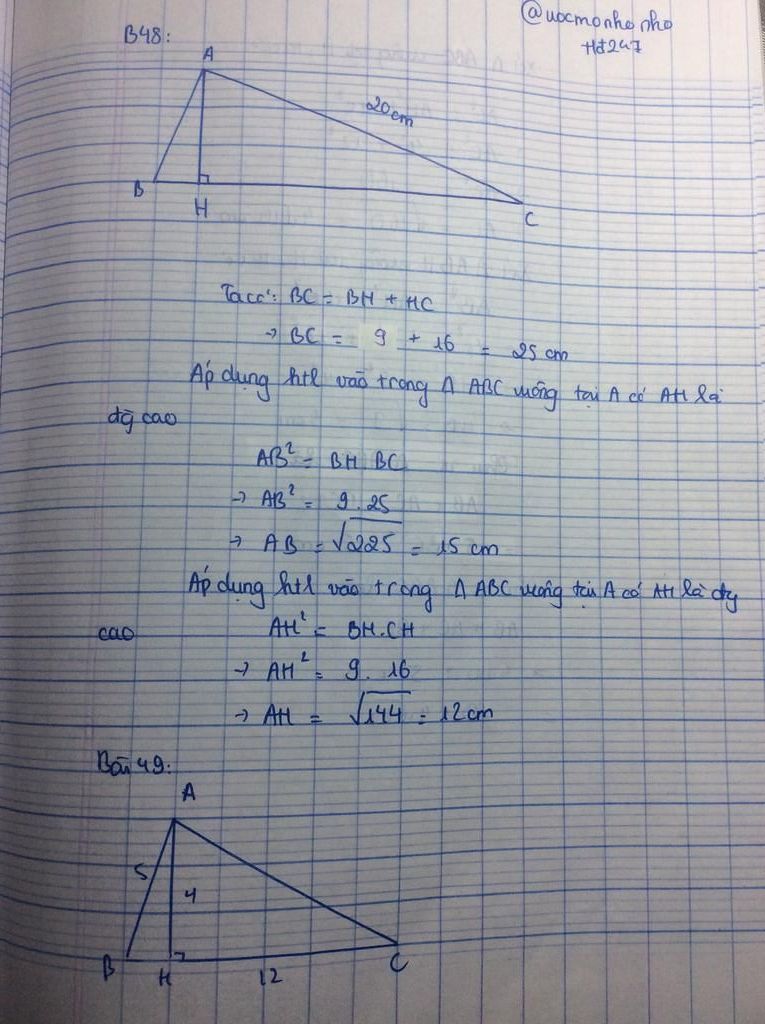 @uocmonho nho
Hđ247
B48:
A
20cm
B
H
C
Ta có: BC = BH + HC
→ BC = 9 + 16 = 25 cm
Áp dụng htl vào trong Δ ABC vuông tại A có AH là
đg cao
AB² = BH BC
→ AB² = 9.25
→ AB = √225 = 15 cm
Áp dụng htl vào trong Δ ABC vuông tại A có AH là đg
cao
AH² = BH.CH
→ AH² = 9. 16
→ AH = √144 = 12cm
Bài 49:
A
5
4
B
H
12
C